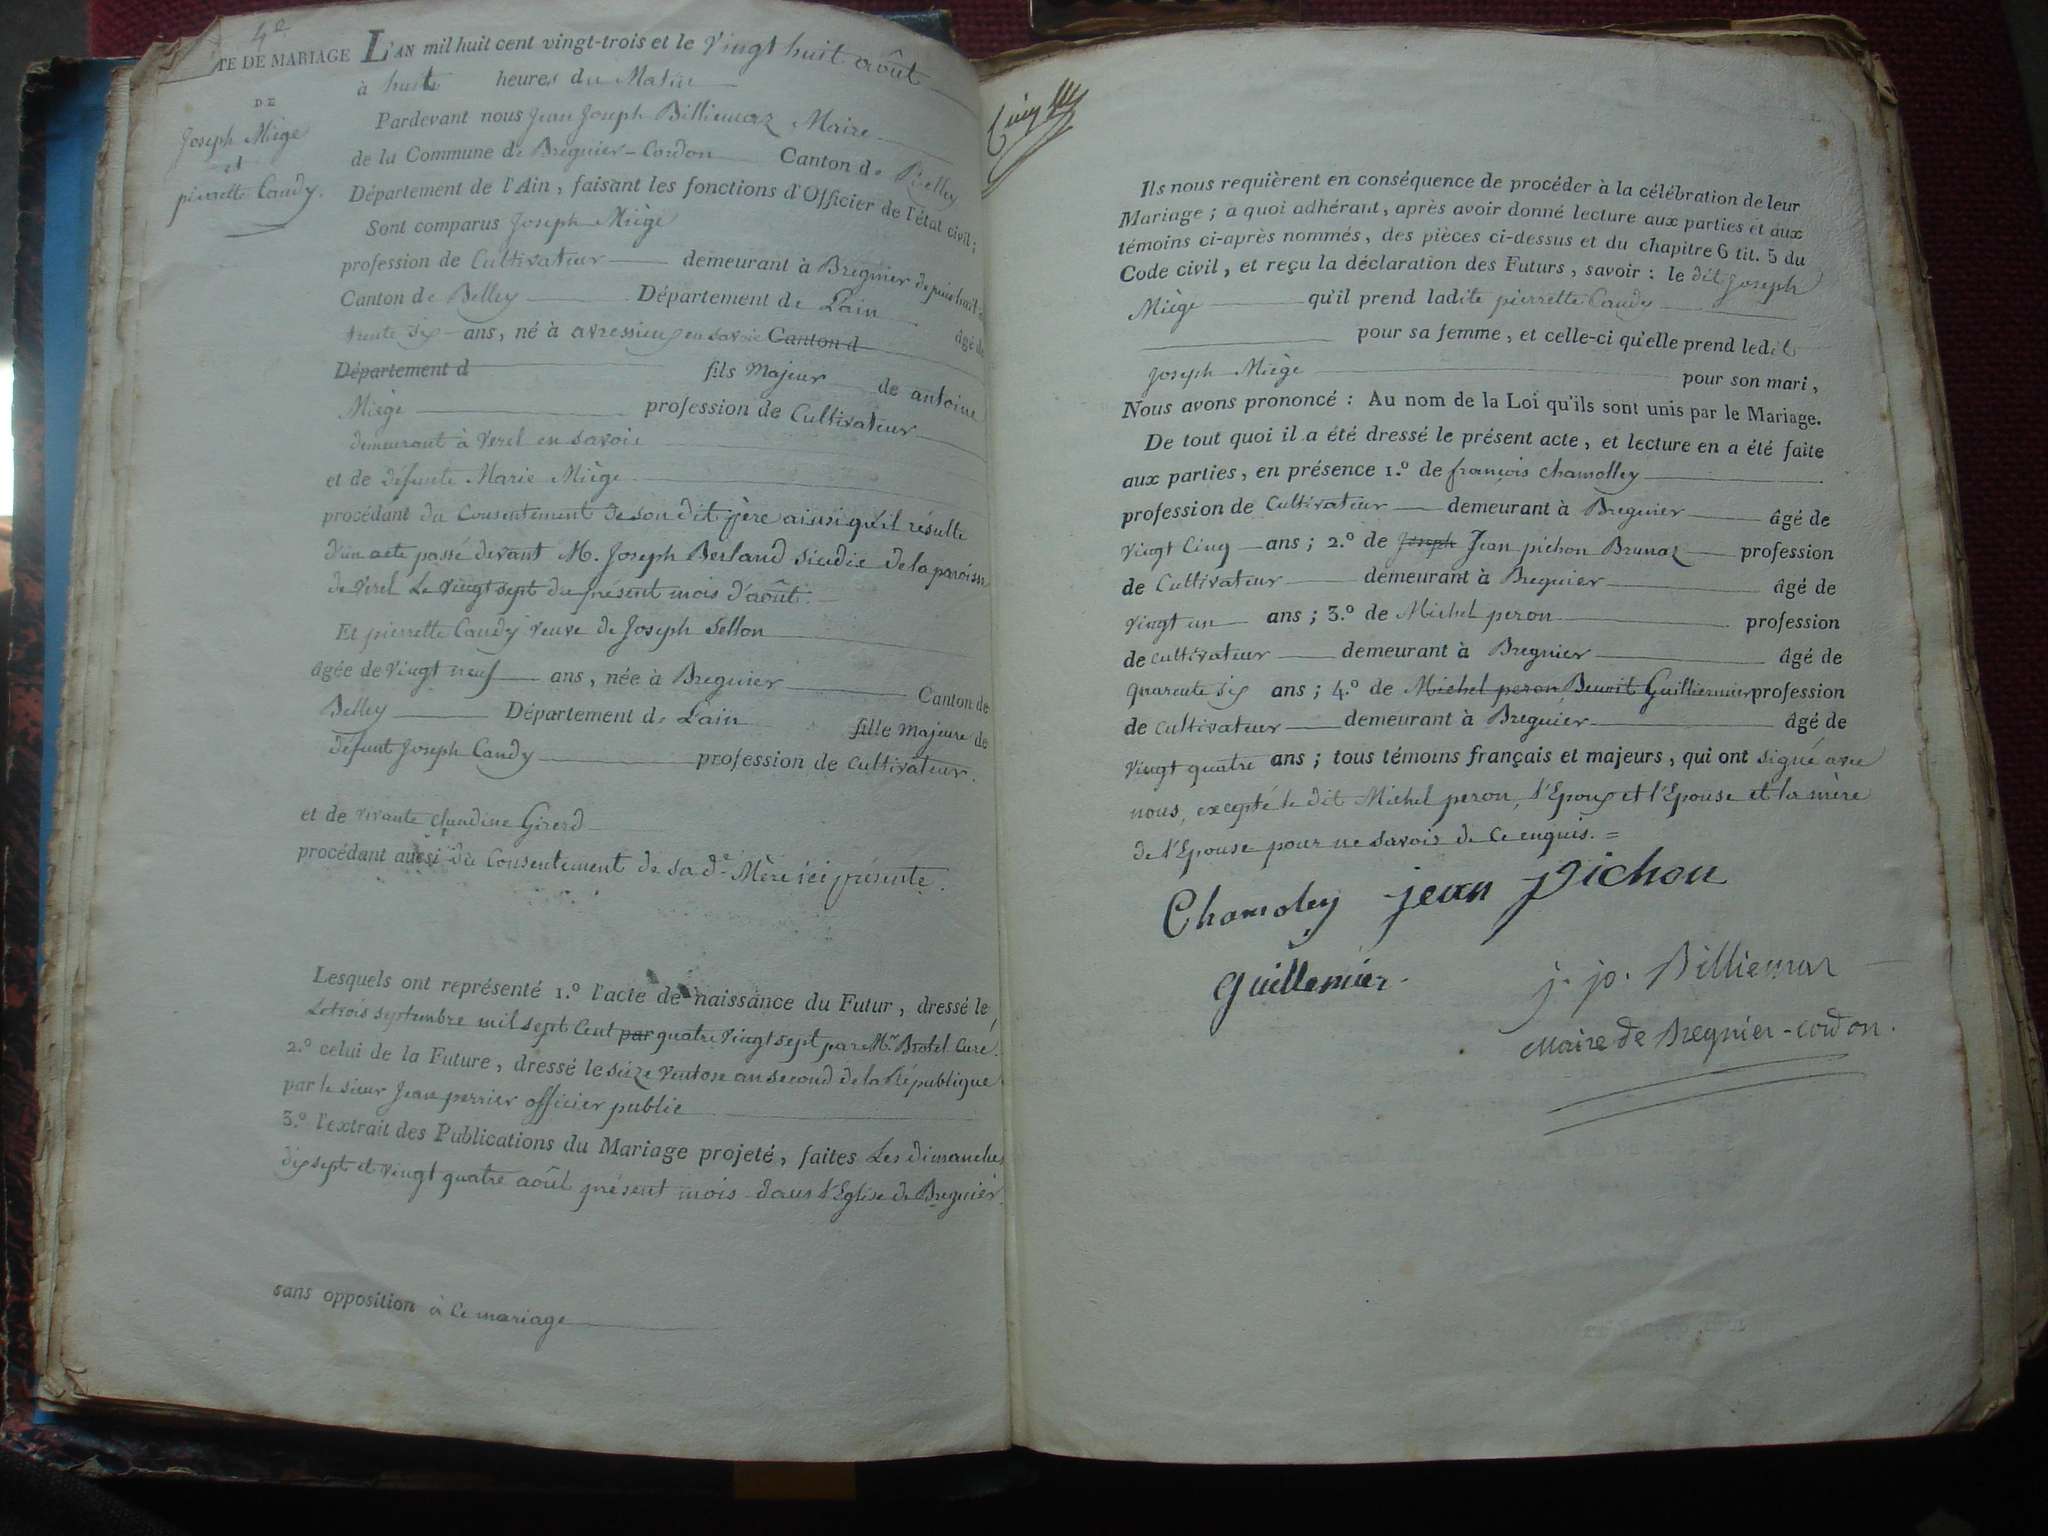 4e
TE DE MARIAGE
DE
Joseph Miège
et
pierrette Candy.
L'AN mil huit cent vingt-trois et le Vingt huit août
à huit heures du Matin
Pardevant nous Jean Joseph Billiemaz Maire
de la Commune de Bregnier-Cordon Canton de Belley
Département de l'Ain, faisant les fonctions d'Officier de l'état civil;
Sont comparus Joseph Miège
profession de Cultivateur demeurant à Bregnier depuis huit
Canton de Belley Département de Lain âgé de
trente six ans, né à avressieux en savoie Canton d
Département d fils Majeur de antoine
Miège profession de Cultivateur
demeurant à Verel en savoie
et de défunte Marie Miège
procédant du Consentement de son dit père ainsi qu'il résulte
d'un acte passé devant M. Joseph Berland Sindic de la paroisse
de Verel Le vingt sept du présent mois d'août.
Et pierrette Candy veuve de Joseph Sellon
âgée de vingt neuf ans, née à Bregnier Canton de
Belley Département de Lain fille Majeure de
défunt Joseph Candy profession de cultivateur.
et de vivante claudine Girerd
procédant aussi du Consentement de sa de. Mère ici présente.
Lesquels ont représenté 1.º l'acte de naissance du Futur, dressé le
Le trois septembre mil sept Cent par quatre vingt sept par Mr. Brotel Curé.
2.º celui de la Future, dressé le seize Ventose an second de la République
par le sieur Jean perrier officier public
3.º l'extrait des Publications du Mariage projeté, faites Les dimanches
dix sept et vingt quatre août présent mois dans l'Eglise de Bregnier
sans opposition à ce mariage
Ils nous requièrent en conséquence de procéder à la célébration de leur
Mariage; a quoi adhérant, après avoir donné lecture aux parties et aux
témoins ci-après nommés, des pièces ci-dessus et du chapitre 6 tit. 5 du
Code civil, et reçu la déclaration des Futurs, savoir: le dit Joseph
Miège qu'il prend ladite pierrette Candy
pour sa femme, et celle-ci qu'elle prend ledit
Joseph Miège pour son mari,
Nous avons prononcé: Au nom de la Loi qu'ils sont unis par le Mariage.
De tout quoi il a été dressé le présent acte, et lecture en a été faite
aux parties, en présence 1.º de françois chamolley
profession de Cultivateur demeurant à Bregnier âgé de
vingt Cinq ans; 2.º de Joseph Jean pichon Brunaz profession
de Cultivateur demeurant à Bregnier âgé de
vingt un ans; 3.º de Michel peron profession
de cultivateur demeurant à Bregnier âgé de
quarante six ans; 4.º de Michel peron Benoit Guilliermier profession
de cultivateur demeurant à Bregnier âgé de
vingt quatre ans; tous témoins français et majeurs, qui ont signé avec
nous, excepté le dit Michel peron, l'Epoux et l'Epouse et la mère
de l'Epouse pour ne savoir de ce enquis. =
Chamoley jean pichon
guillemier.
j. jo. Billiemaz
Maire de Bregnier-cordon.